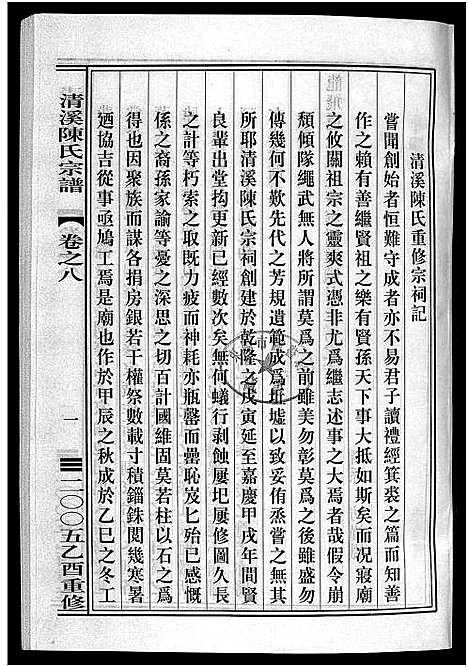 清溪陳氏重修宗祠記
嘗聞創始者恒難守成者亦不易君子讀禮經箕裘之篇而知善
作之賴有善繼賢祖之樂有賢孫天下大抵如斯矣而况寢廟
之攸關祖宗之靈爽式憑非尤爲繼志述事之大焉者哉假令崩
頹傾隊繩武無人將所謂莫爲之前雖美勿彰莫爲之後雖盛勿
傳幾何不歎先代之芳規遺範成爲坵墟以致妥侑烝嘗之無其
所耶清溪陳氏宗祠創建於乾隆之戊寅延至嘉慶甲戌年間賢
良輩出堂构更新已經數次矣無何蟻行剥蝕屢圮屢修圖久長
之計等朽索之取既力疲而神耗亦瓶罄而罍恥岌七殆已感慨
係之裔孫家諭等憂之深思之切百計國維固莫若柱以石之爲
得也因聚族而謀各捐房銀若干權祭數載寸積錙銖閲幾寒暑
迺協吉從事亟鳩工焉是廟也作於甲辰之秋成於乙巳之冬工
清溪陳氏宗譜
卷之八
一
二〇〇五乙酉重修